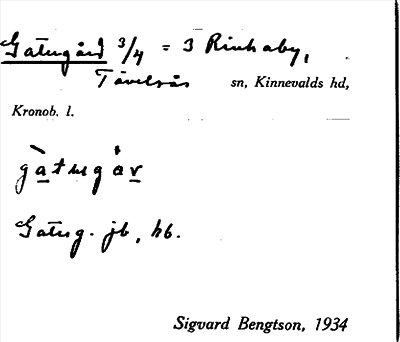 Gatugård 3/4 = 3 Rinkaby,
Tävelsås sn, Kinnevalds hd,
Kronob. l.
gàtugår
Gatug. jb, hb.
Sigvard Bengtson, 1934